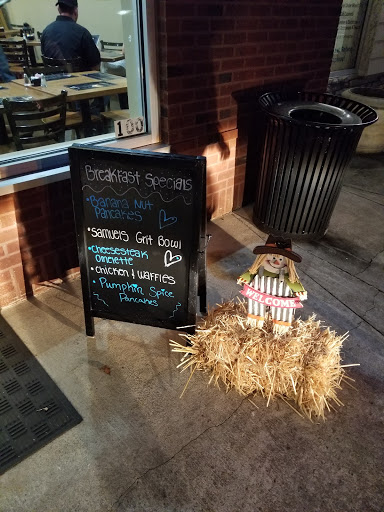 100
Breakfast Specials
• Banana Nut
Pancakes
• Samuels Grit Bowl
• Cheesesteak
Omelette
• Chicken & Waffles
• Pumpkin Spice
Pancakes
WELCOME